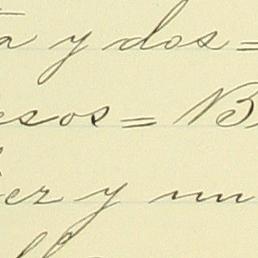 a y dos =
esos = B
ez y un